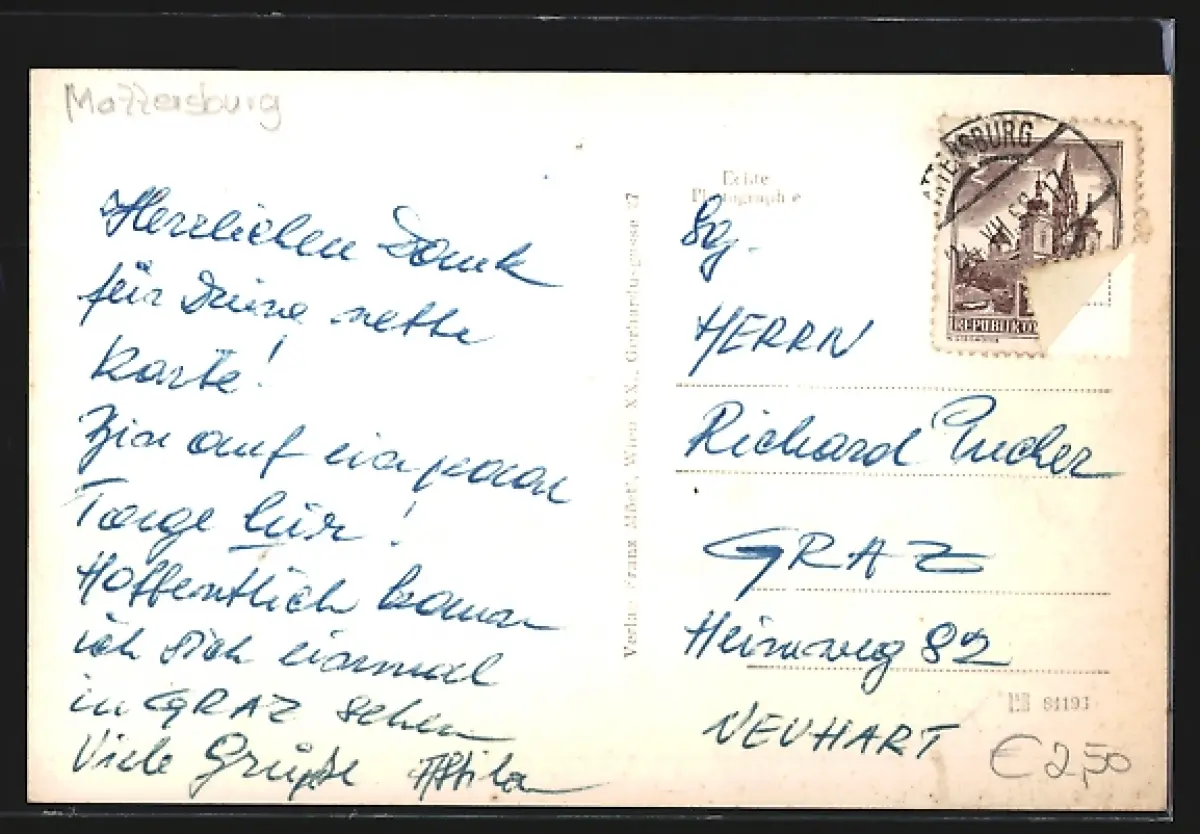 Mattersburg
Herzlichen Dank
für Deine nette
Karte!
Bin auf ein paar
Tage hier!
Hoffentlich kann
ich Dich einmal
in GRAZ sehen
Viele Grüße Attila
Verlag Franz Mörtl, Wien XX., Gerhardusgasse 27
Echte
Photographie
TTERSBURG
REPUBLIK Ö
Sg.
HERRN
Richard Pucher
GRAZ
Heimweg 82
NEUHART
81193
€ 2,50